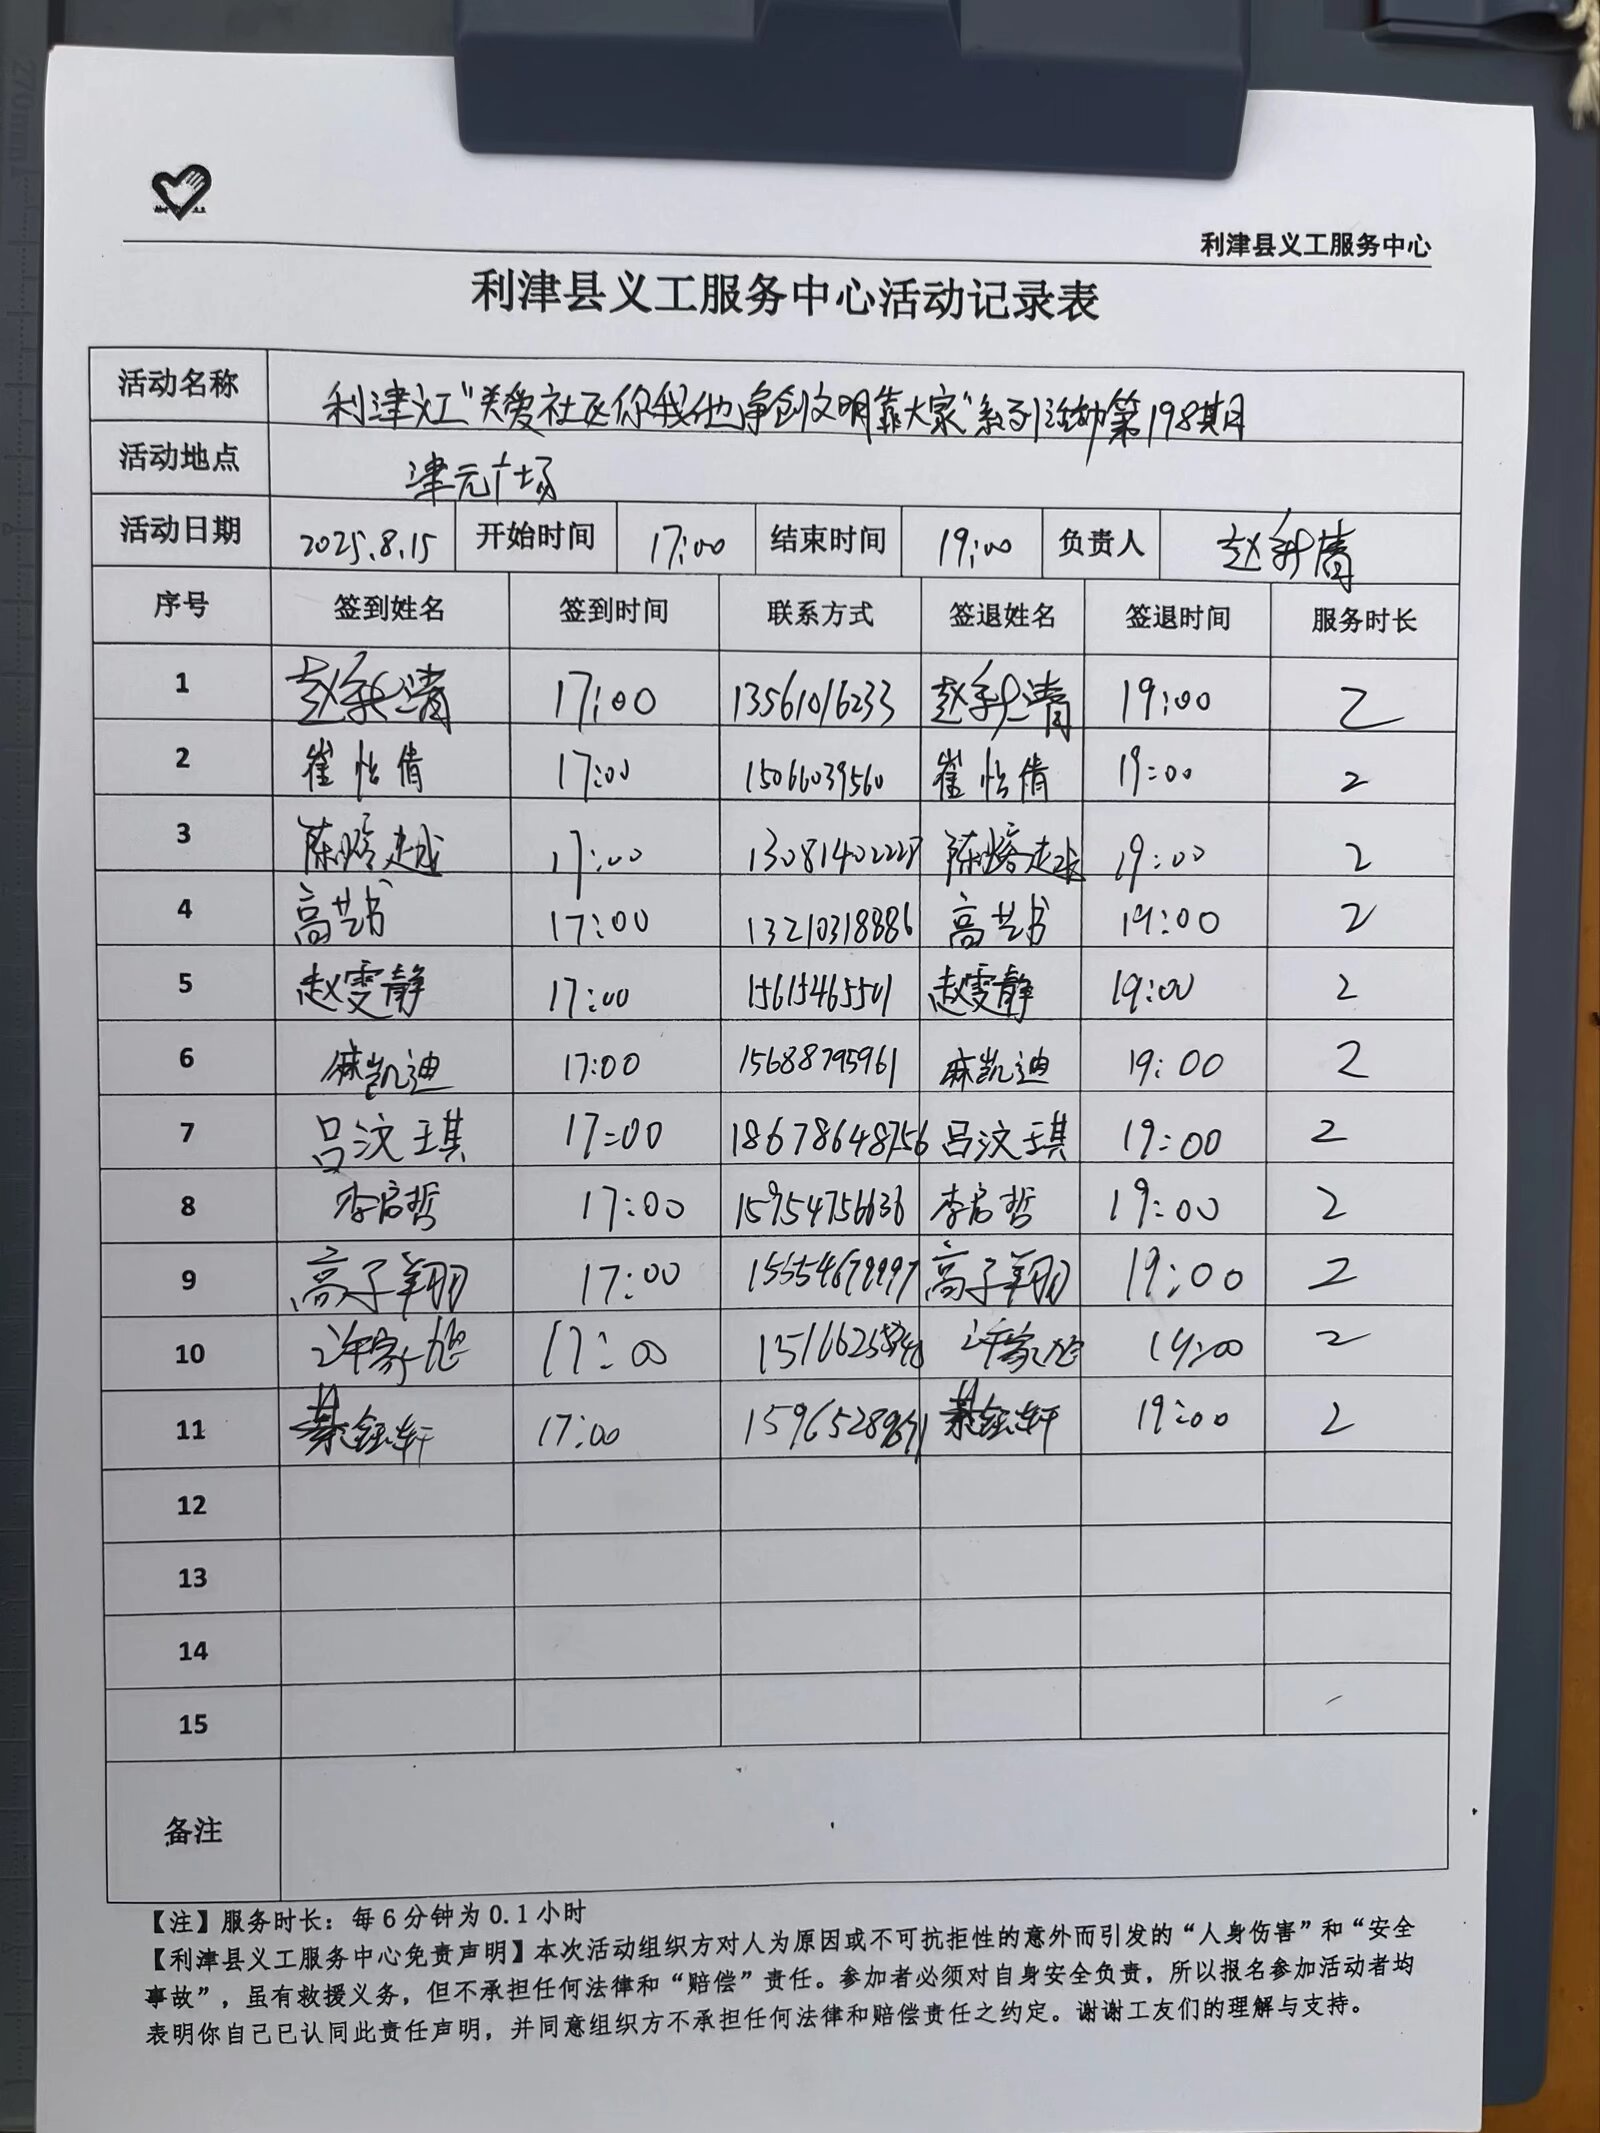 利津县义工服务中心
利津县义工服务中心活动记录表
活动名称 利津义工“关爱社区你我他争创文明靠大家”系列活动第198期
活动地点 津元广场
活动日期 2025.8.15 开始时间 17:00 结束时间 19:00 负责人 赵新清
序号 签到姓名 签到时间 联系方式 签退姓名 签退时间 服务时长
1 赵新清 17:00 13561016233 赵新清 19:00 2
2 崔怡倩 17:00 15066039560 崔怡倩 19:00 2
3 17:00 19:00 2
4 高艺书 17:00 13210318886 高艺书 19:00 2
5 赵雯静 17:00 15615465501 赵雯静 19:00 2
6 麻凯迪 17:00 15688795961 麻凯迪 19:00 2
7 吕汶琪 17:00 18678648756 吕汶琪 19:00 2
8 李启哲 17:00 15954756636 李启哲 19:00 2
9 高子翔 17:00 高子翔 19:00 2
10 17:00 19:00 2
11 17:00 19:00 2
12
13
14
15
备注
【注】服务时长：每6分钟为0.1小时
【利津县义工服务中心免责声明】本次活动组织方对人为原因或不可抗拒性的意外而引发的“人身伤害”和“安全
事故”，虽有救援义务，但不承担任何法律和“赔偿”责任。参加者必须对自身安全负责，所以报名参加活动者均
表明你自己已认同此责任声明，并同意组织方不承担任何法律和赔偿责任之约定。谢谢工友们的理解与支持。